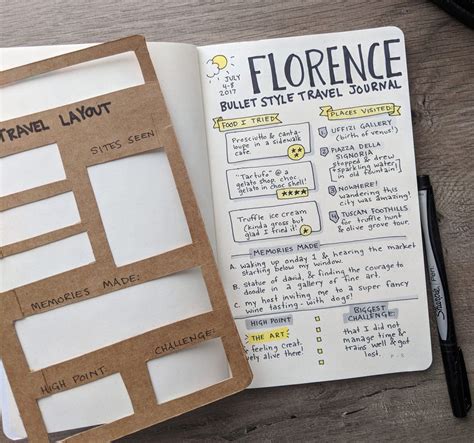 TRAVEL LAYOUT
SITES SEEN
MEMORIES MADE:
HIGH POINT:
CHALLENGE:
JULY
4-8
2017
FLORENCE
BULLET STYLE TRAVEL JOURNAL
FOOD I TRIED
Prosciutto & canta-
loupe in a sidewalk
cafe
"Tartufo" @ a
gelato shop. choc.
gelato in choc shell!
Truffle ice cream
(kinda gross but
glad I tried it!)
PLACES VISITED
1 UFFIZI GALLERY
(birth of venus!)
2 PIAZZA DELLA
SIGNORIA
stopped & drew
sparkling water
in old fountain
3 NOWHERE!
wandering this
city was amazing!
4 TUSCAN FOOTHILLS
for truffle hunt
& olive grove tour.
MEMORIES MADE
A. waking up on day 1 & hearing the market
starting below my window.
B. statue of david, & finding the courage to
doodle in a gallery of fine art.
C. my host inviting me to a super fancy
wine tasting - with dogs!
HIGH POINT
THE ART
feeling creat-
ively alive there!
BIGGEST
CHALLENGE:
that I did not
manage time &
trains well & got
lost.
Sharpie